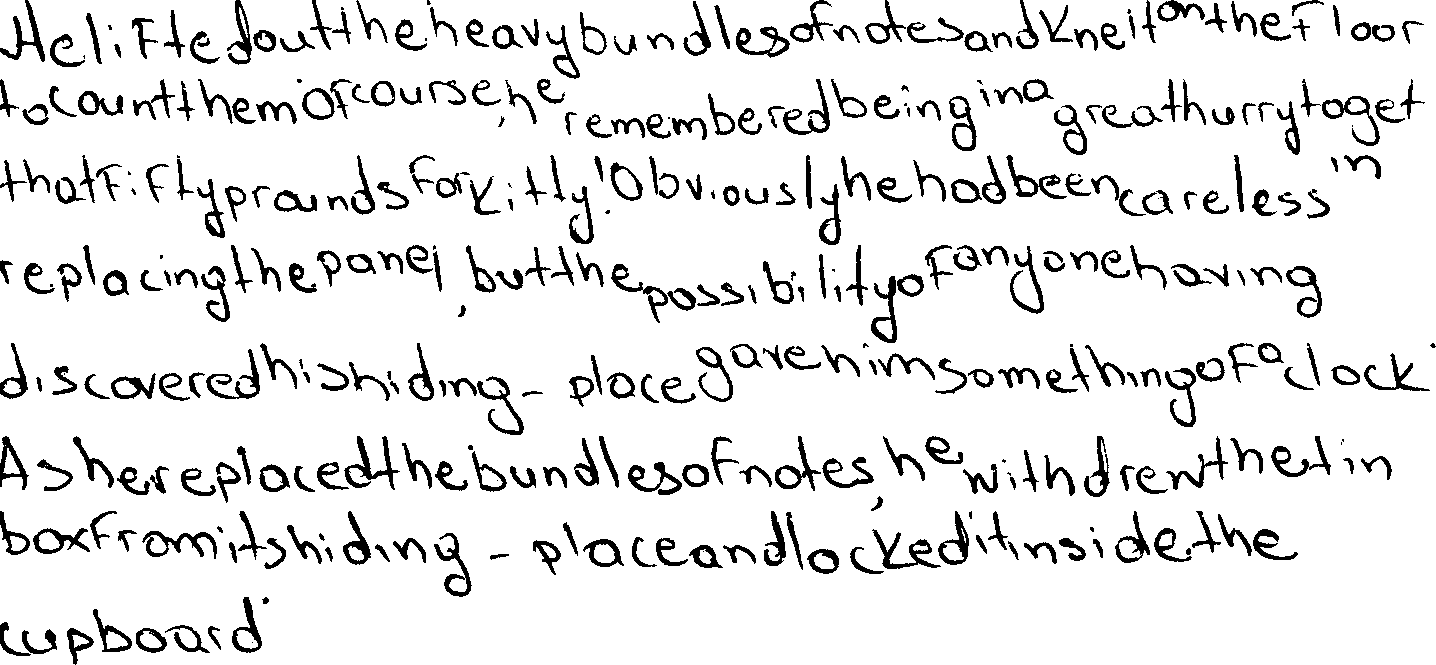 He lifted out the heavy bundles of notes and knelt on the floor
to count them. Of course, he remembered being in a great hurry to get
that fifty prounds for Kitty! Obviously he had been careless in
replacing the panel, but the possibility of anyone having
discovered his hiding - place gave him something of a clock.
As he replaced the bundles of notes, he withdrew the tin
box from its hiding - place and locked it inside the
cupboard.